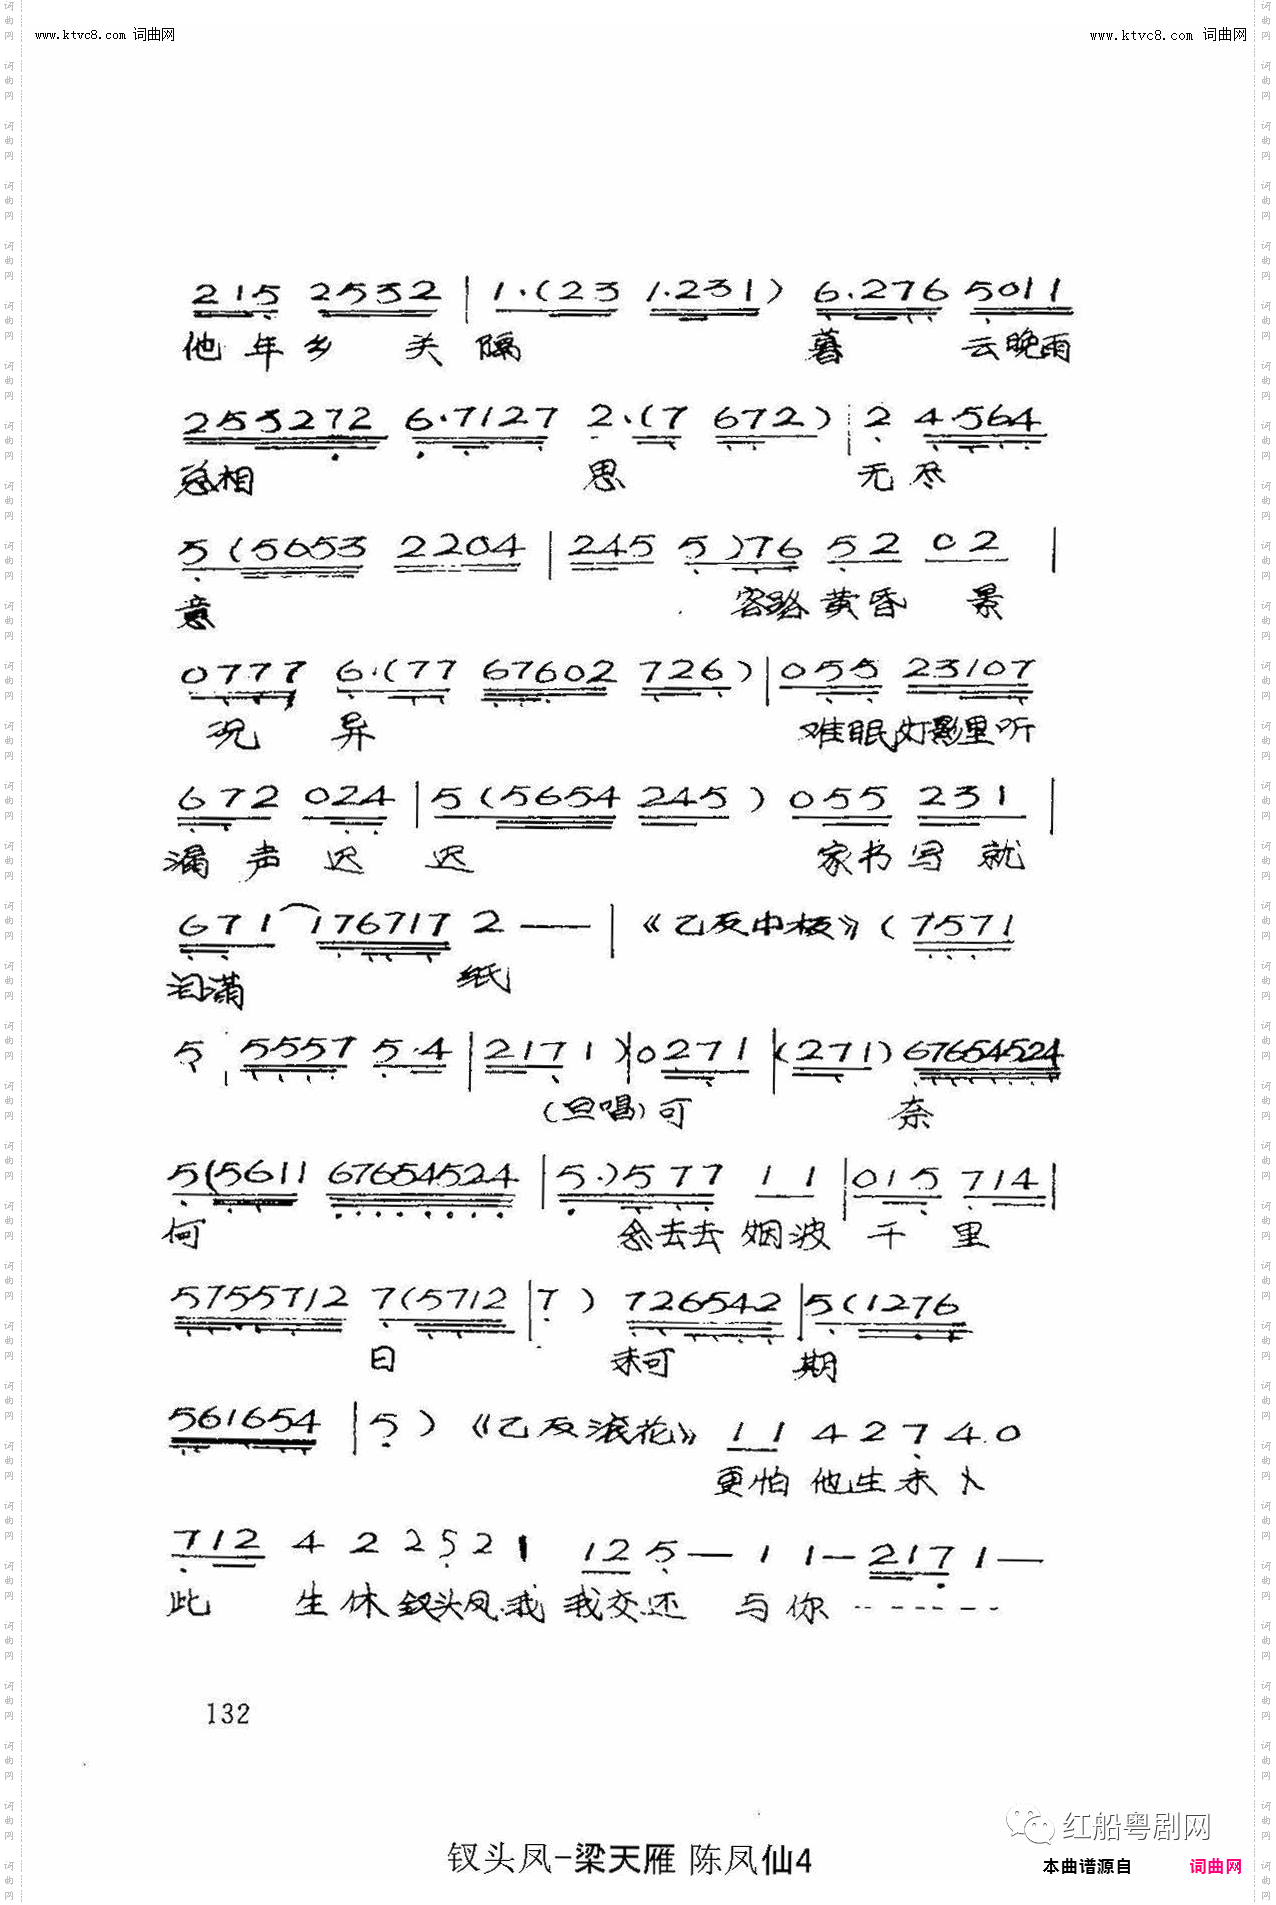 www.ktvc8.com 词曲网 www.ktvc8.com 词曲网
215 2532 | 1·(23 1.231) 6·276 5011
他年乡 关隔 暮 云晚雨
253272 6·7127 2·(7 672) | 2 4·564
总相 思 无尽
5(5653 2204 | 245 5)76 52 02 |
意 客路黄昏 景
0777 6·(77 67602 726) | 055 23107
况 异 难眠灯影里听
672 024 | 5(5654 245) 055 231 |
漏声迟 迟 家书写 就
671 176717 2 —— | 《乙反中板》(7571
泪满 纸
5 5557 5·4 | 2171) | 0271 | (271) 67654524
(旦唱)可 奈
5(5611 67654524 | 5·)577 11 | 015 714 |
何 念去去 烟波 千 里
5755712 7(5712 | 7) 726542 | 5(1276
日 未可 期
561654 | 5) 《乙反滚花》 11 4274.0
更怕 他生未卜
712 4 2 2521 125— 11—2171—
此 生休钗头凤.我 我交还 与你 ------
132
红船粤剧网
钗头凤-梁天雁 陈凤仙4
本曲谱源自 词曲网